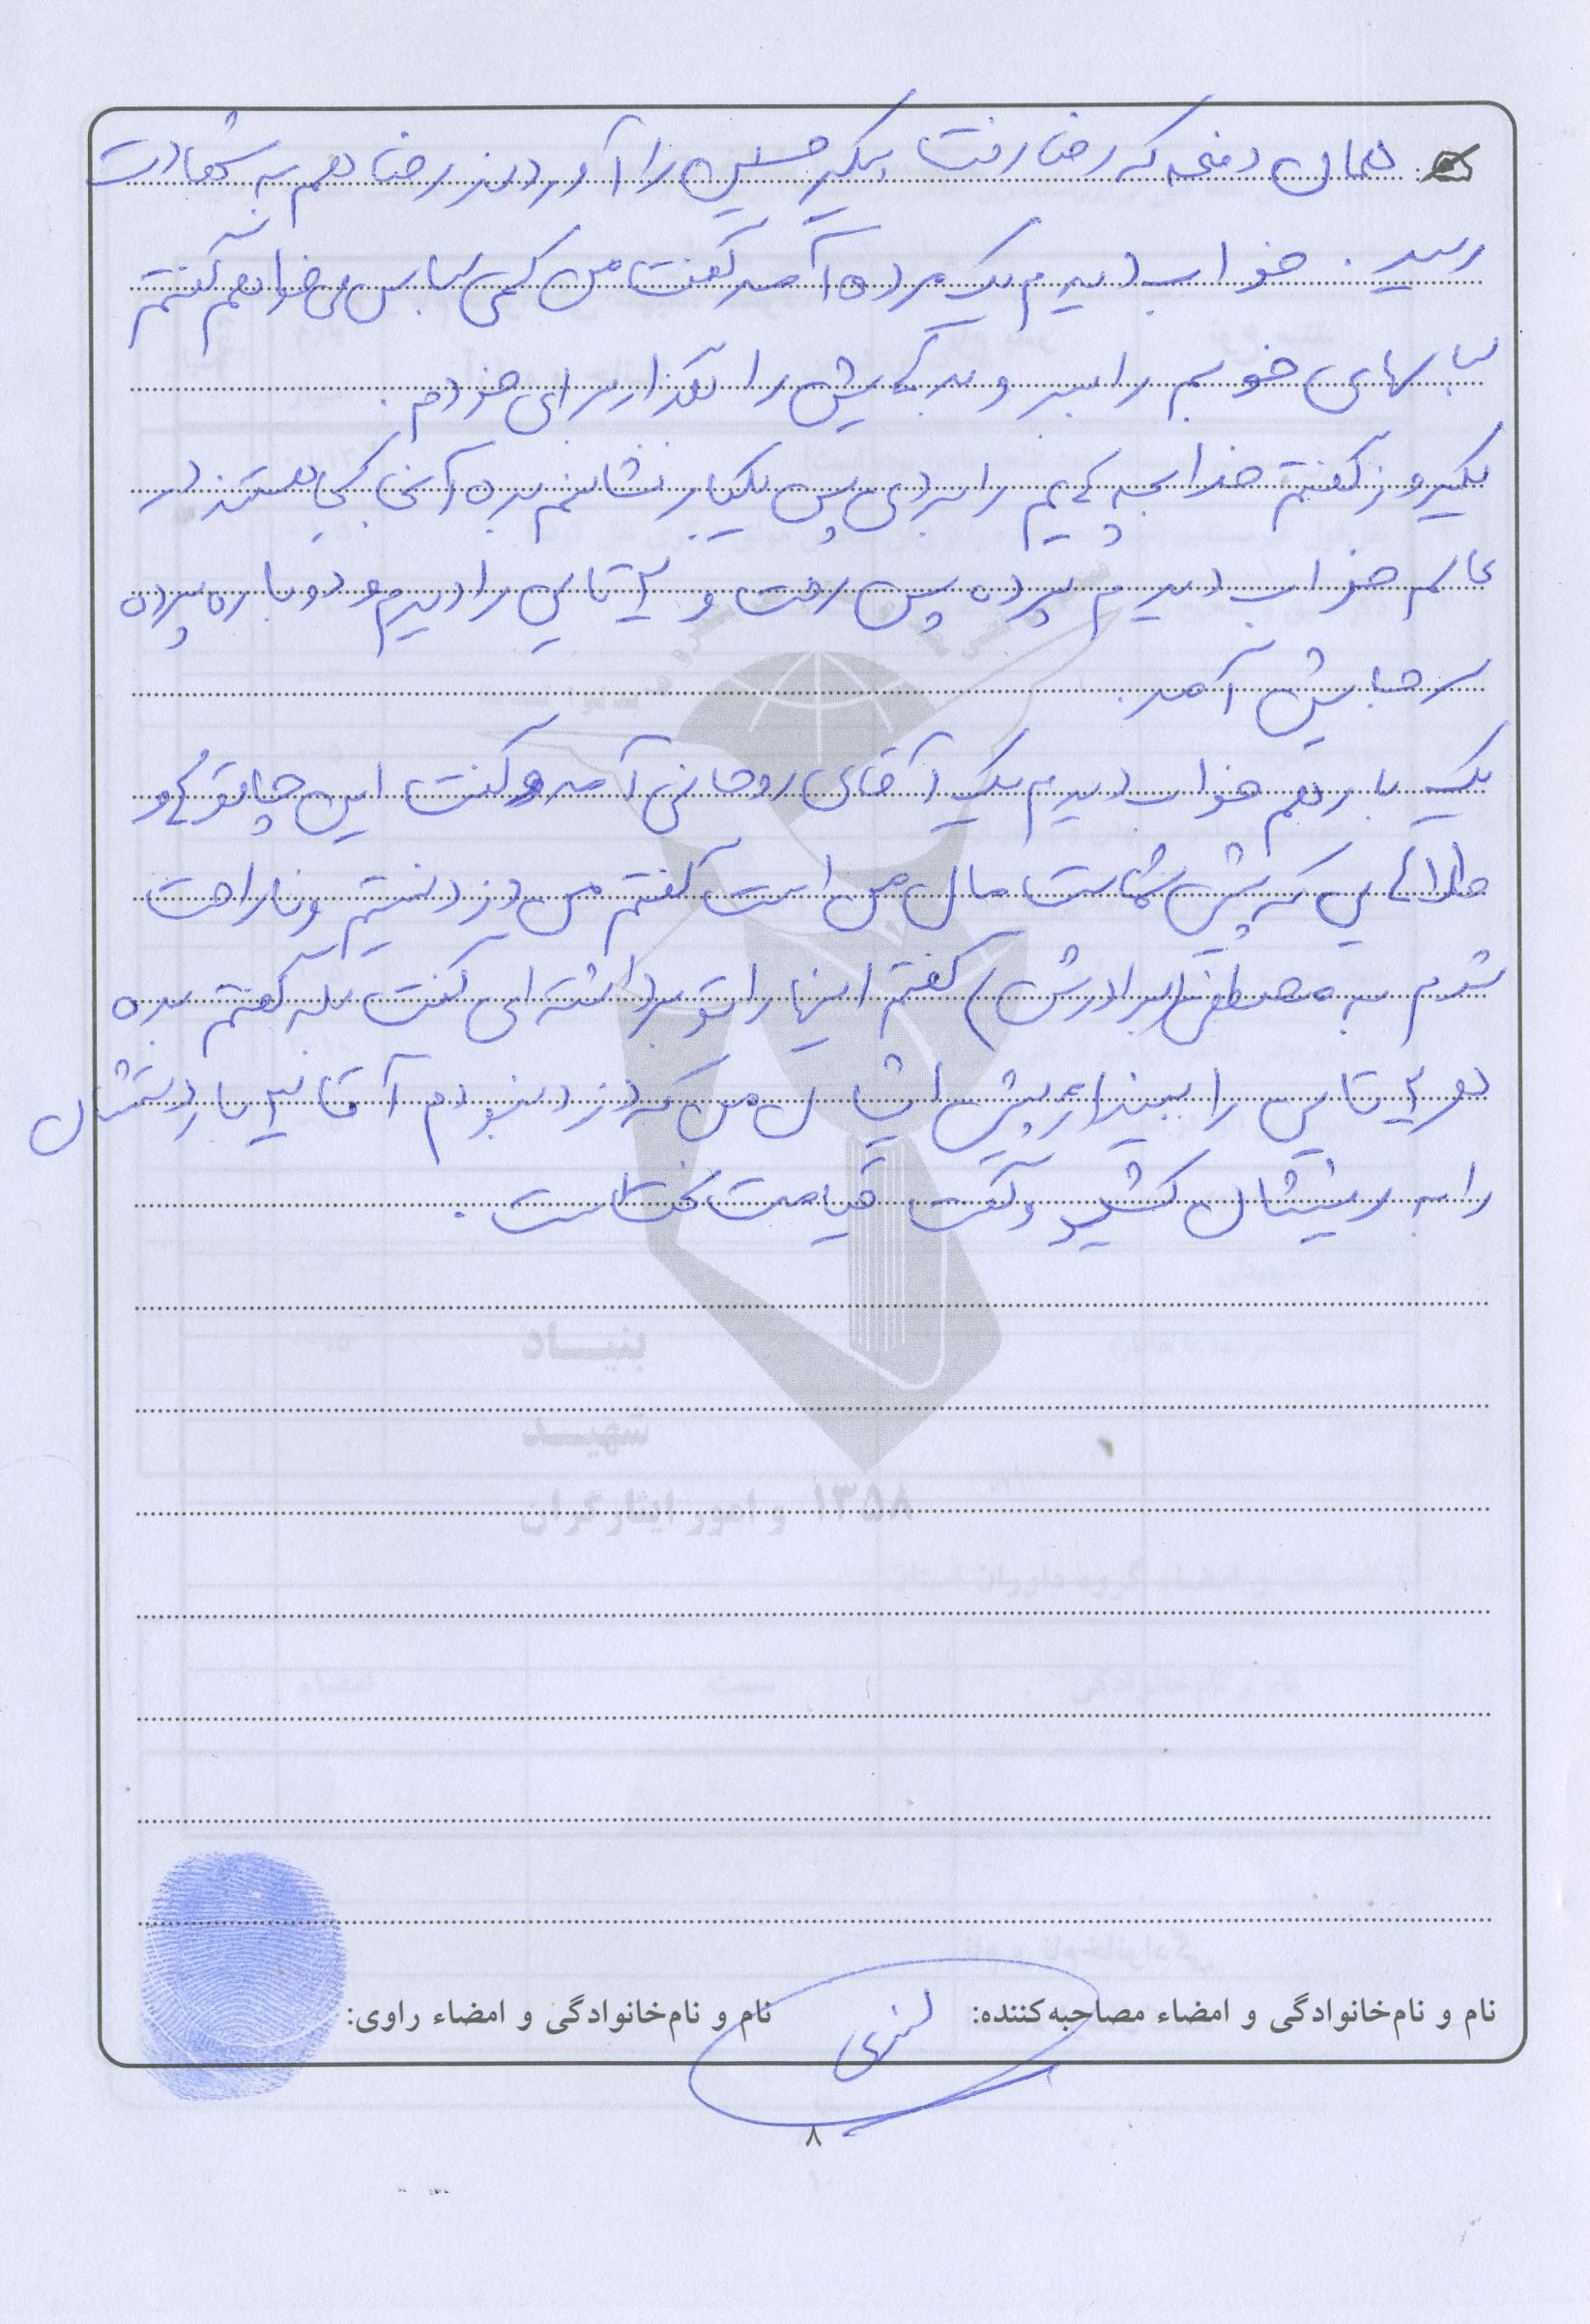 همان دفعه که رضا رفت پیکر حسین را آوردند رضا هم به شهادت
رسید. خواب دیدم یک مرده آمد گفت من کمی لباس می‌خواهم گفتم
لباسهای خوبم را ببر و بدهایش را بگذار برای خودم.
یکروز گفتم خدا بچه‌هایم را بردی پس یکبار نشانم بده آنجا کجا هستند در
عالم خواب دیدم پرده پس رفت و ۳ تایی را دیدم و دوباره پرده
سر جایش آمد.
یک بار هم خواب دیدم یک آقای روحانی آمد و گفت این چاقوها و
طلاهایی که پیش شماست مال من است گفتم من دزد نیستم و ناراحت
شدم به مصطفی (برادرش) گفتم اینها را تو برداشته‌ای گفت بله گفتم بده
هر ۳ تایی را بینداز پیش ایشان من که دزد نبودم آقا ۳ بار دستشان
را به ریششان کشید و گفت قیامت سخت است.
بنیاد
شهید
و امور ایثارگران ۱۳۵۸
نام و نام‌خانوادگی و امضاء مصاحبه‌کننده: نام و نام‌خانوادگی و امضاء راوی:
۸